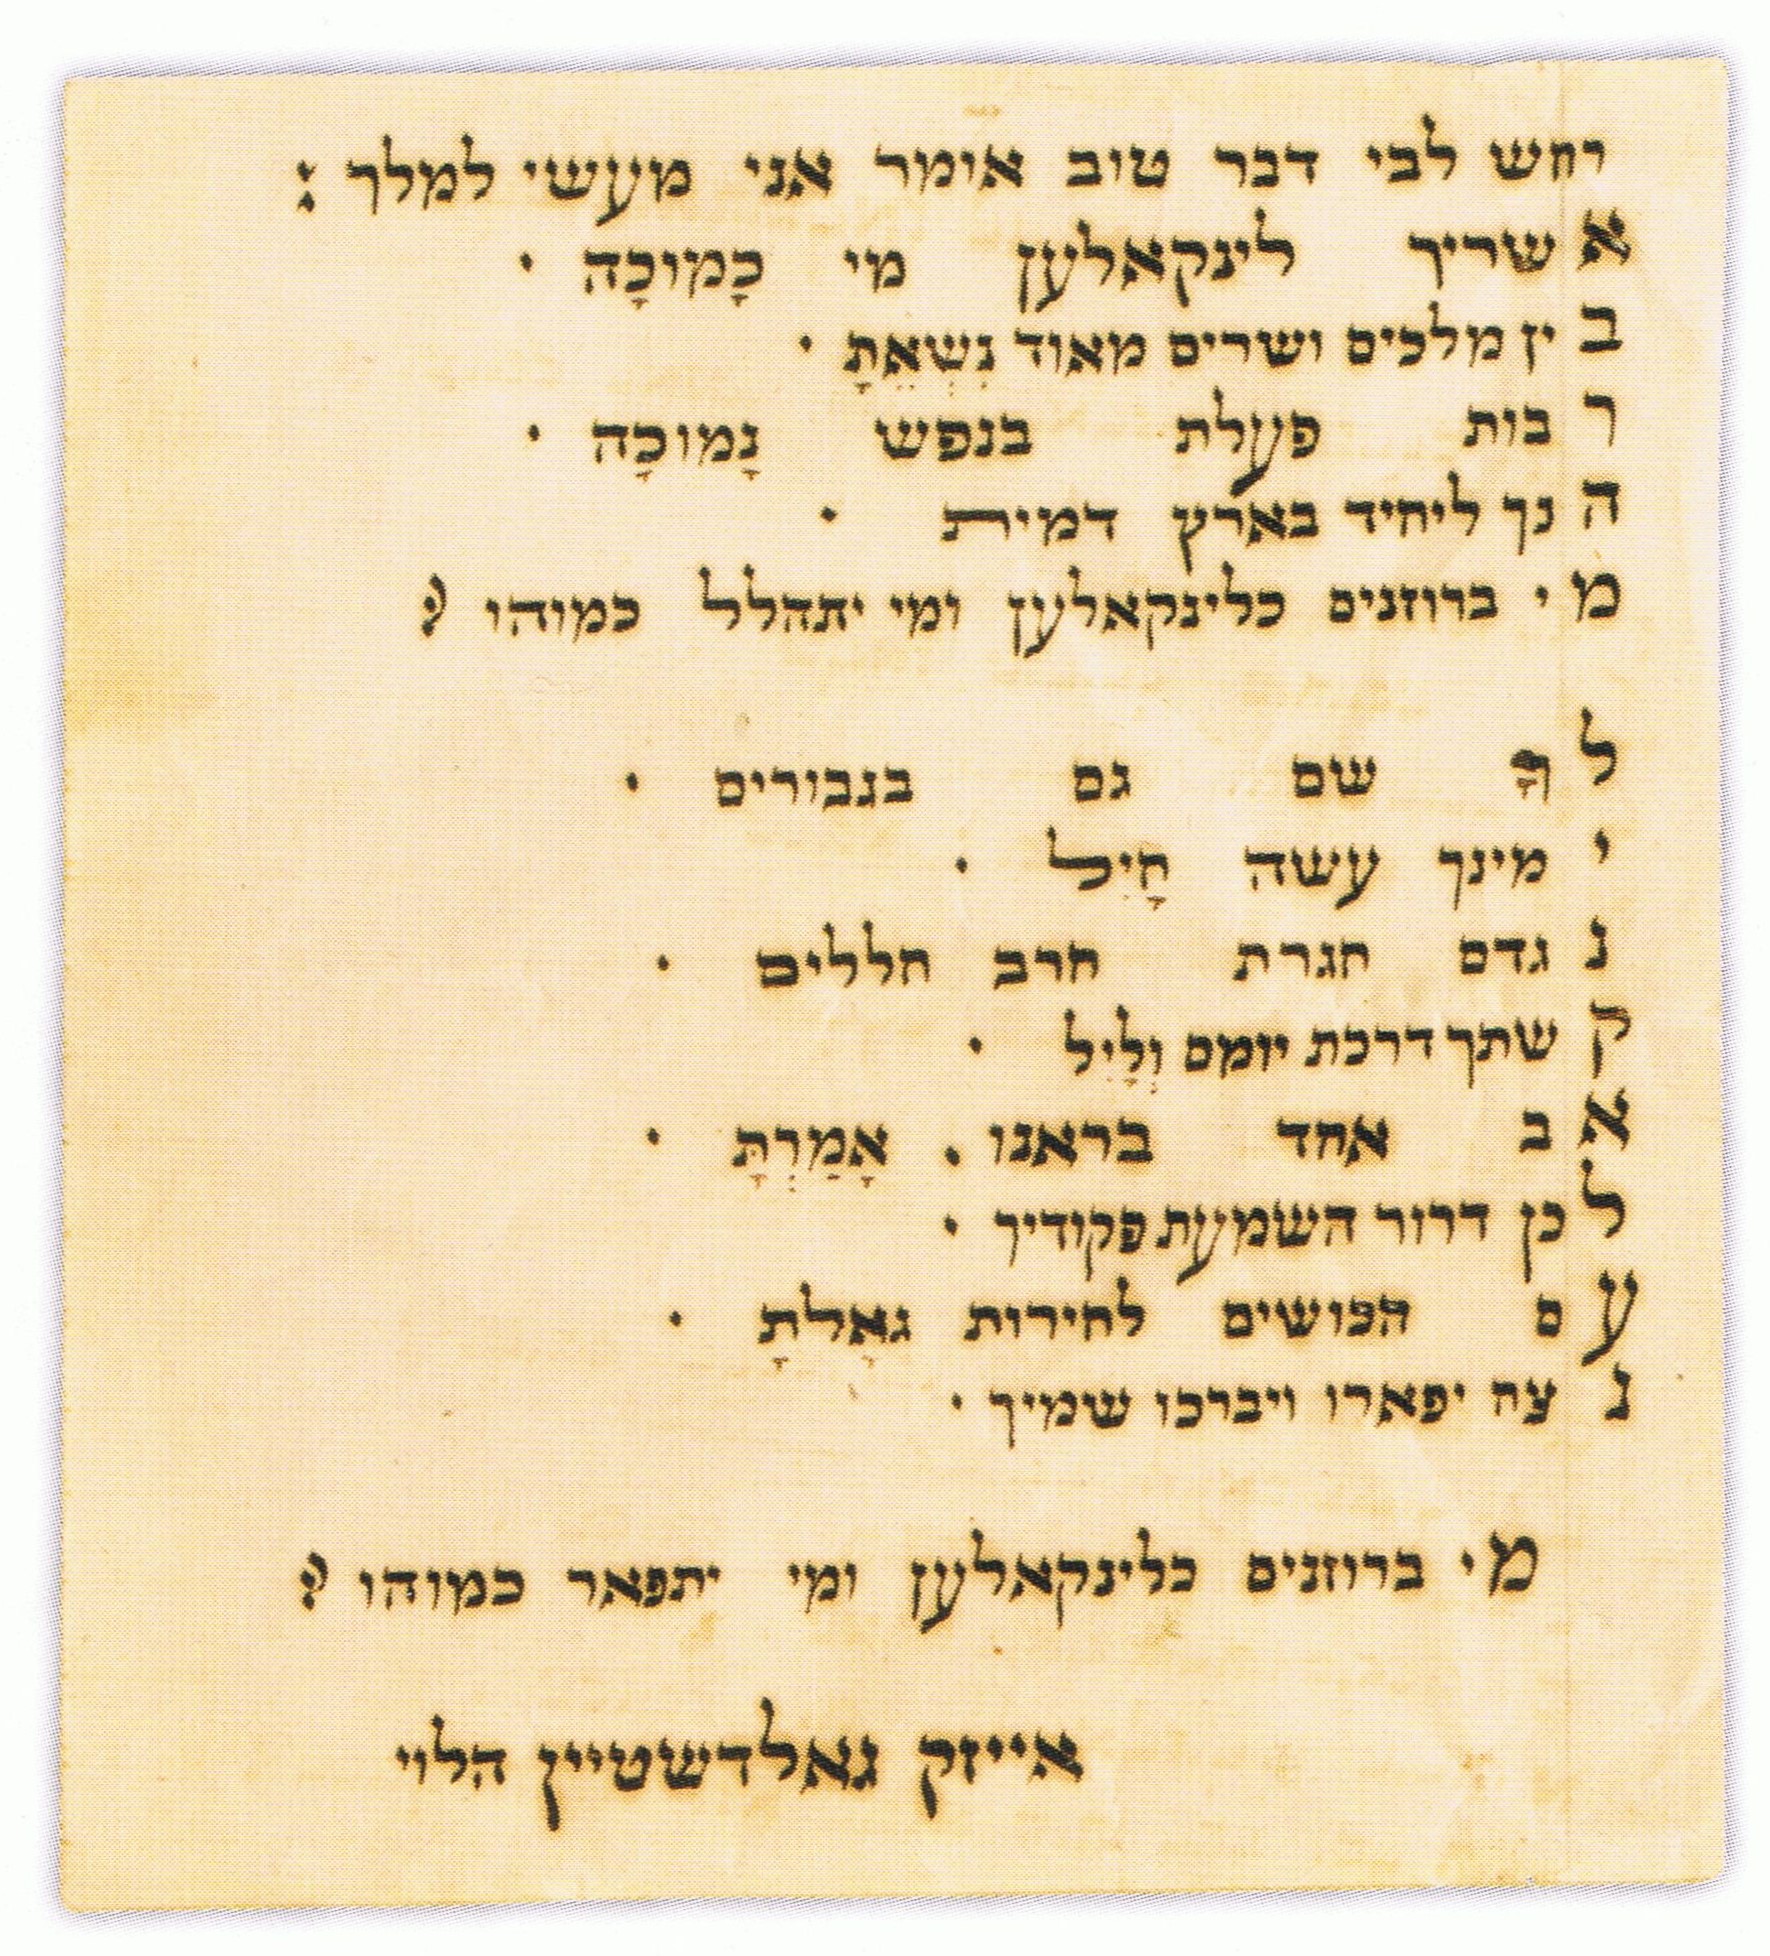 רחש לבי דבר טוב אומר אני מעשי למלך :
אשריך לינקאלען מי כָמוכָה ·
בין מלכים ושרים מאוד נִשְאֵתָ ·
רבות פעלת בנפש נָמוכָה ·
הנך ליחיד בארץ דמית ·
מי ברוזנים כלינקאלען ומי יתהלל כמוהו ?
לךָ שם גם בגבורים ·
ימינך עשה חָיִל ·
נגדם חגרת חרב חללים ·
קשתך דרכת יומם וְלָיִל ·
אב אחד בראנו . אָמַרְתָּ ·
לכן דרור השמעת פקודיך ·
עם הכושים לחירות גאַלתָ ·
נצח יפארו ויברכו שמיך ·
מי ברוזנים כלינקאלען ומי יתפאר כמוהו ?
אייזק גאלדשטיין הלוי